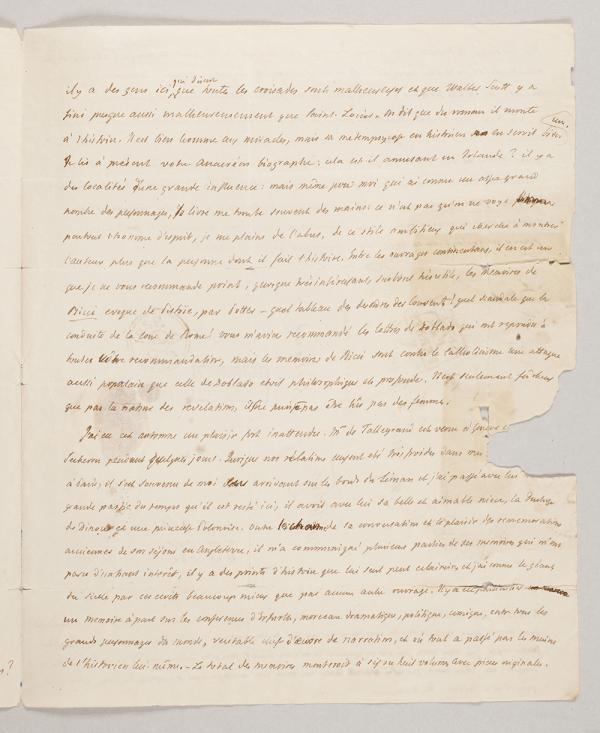 qui disent
il y a des gens ici que toutes les croisades sont malheureuses et que Walter Scott y a
fini presque aussi malheureusement que Saint-Louis. On dit que du roman il monte
à l'histoire. C'est bien l'homme aux miracles, mais sa métempsycose en historien en seroit
un.
Je lis à présent votre Anacréon biographe: cela est il amusant en Irlande? il y a
des localités d'une grande influence: mais même pour moi qui ai connu un assez grand
nombre des personnages, le livre me tombe souvent des mains: ce n'est pas qu'on ne voye
partout l'homme d'esprit, je me plains de l'abus, de ce stile ambitieux qui cherche à montrer
l'auteur plus que la personne dont il fait l'histoire. Entre les ouvrages continentaux, il en est un
que je ne vous recommande point, quoique très intéressant, surtout très utile, les mémoires de
Ricci evêque de Pistoie, par Potter - quel tableau des desordres des couvents! quel scandale que la
conduite de la cour de Rome! vous m'aviez recommandé les lettres de Doblado qui ont repondu à
toutes votre recommandation, mais les memoires de Ricci sont contre le Catholicisme une attaque
aussi populaire que celle de Doblado étoit philosophique et profonde. C'est seulement facheux
que par la nature des revelations, il ne puisse pas être lu par des femmes.
J'ai eu cet automne un plaisir fort inattendu. Mr de Talleyrand est venu à Genève
Secheron pendant quelques jours. Quoique nos relations eussent été très froides dans mon
à Paris, il s'est souvenu de moi en arrivant sur les bords du Léman et j'ai passé avec lui
grande partie du temps qu'il est resté ici; il avoit avec lui sa belle et aimable nièce, la Duchesse
de Dino et une princesse Polonoise. Outre le charme de sa conversation et le plaisir des remémorations
anciennes de son séjour en Angleterre, il m'a communiqué plusieurs parties de ses memoires qui m'ont
paru d'un haut intérêt, il y a des points d'histoire que lui seul peut éclaircir et j'ai connu le géant
du siecle par ces écrits beaucoup mieux que par aucun autre ouvrage. Il y a en particulier
un mémoire à part sur les conférences d'Erfurth, morceau dramatique, politique, comique, entre tous les
grands personnages du monde, veritable chef d'œuvre de narration, et où tout a passé par les mains
de l'historien lui même. - Le total des memoires monteroit à six ou huit volumes avec pieces originales.